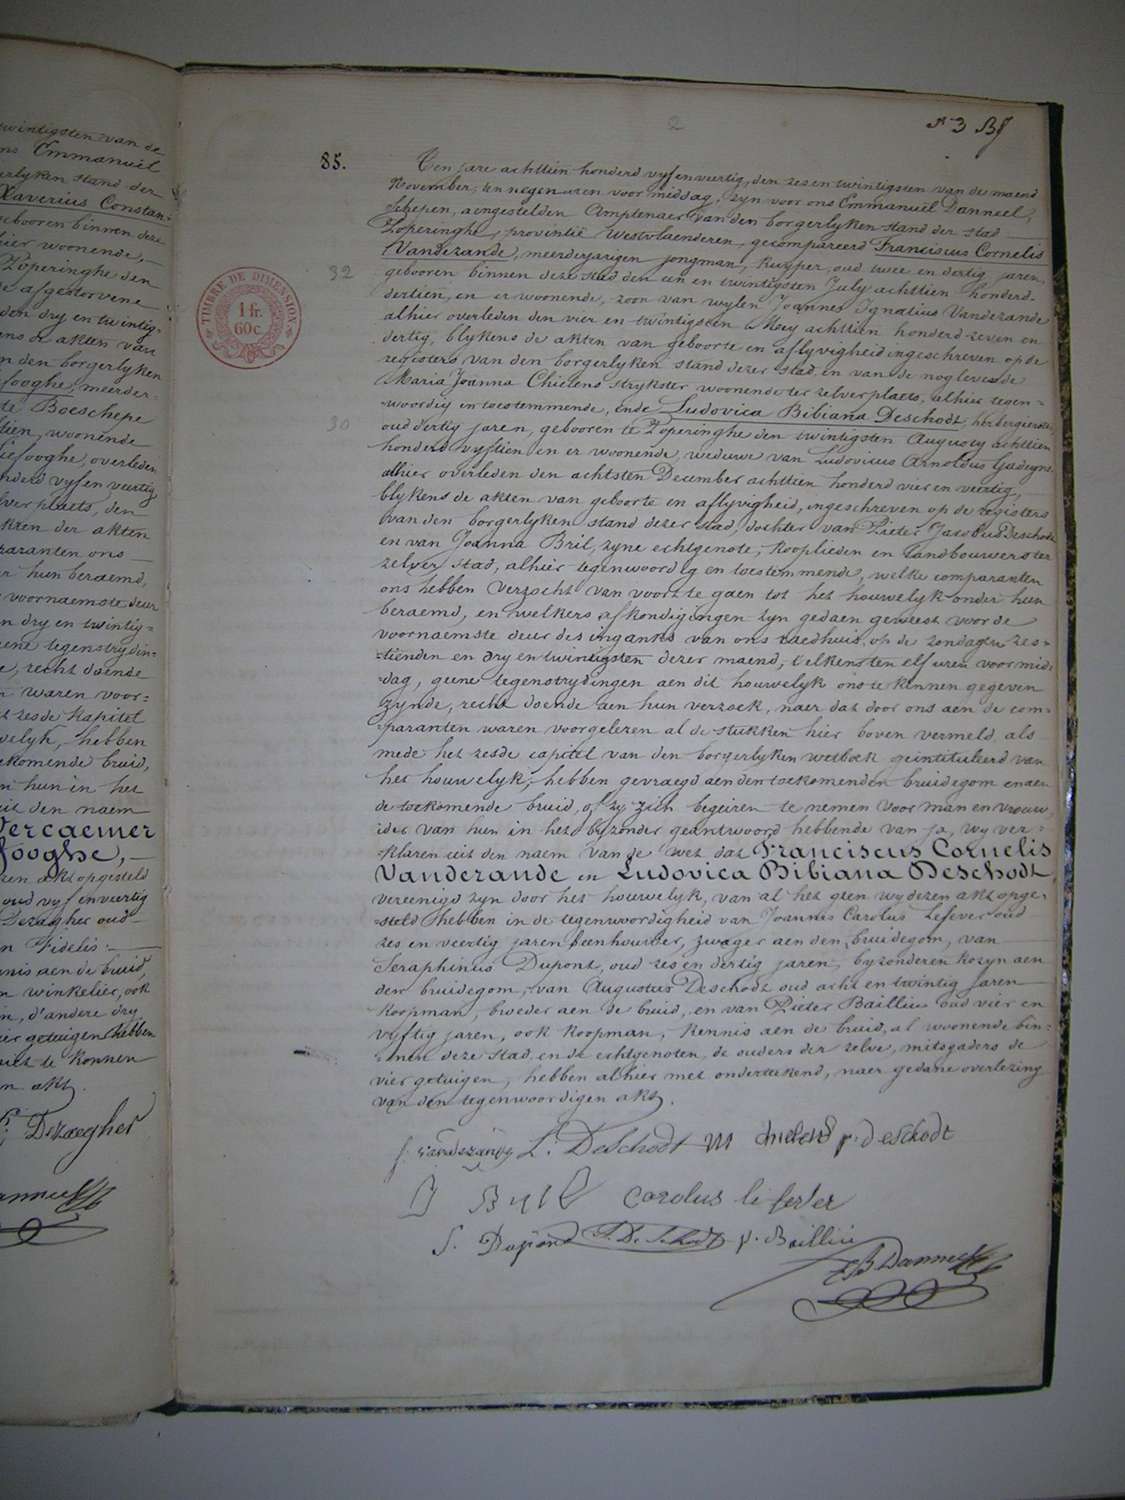 N 3
85.
Ten jare achttien honderd vyf en veertig, den zes en twintigsten van de maend
November, ten negen uren voor middag, zyn voor ons Emmanuël Danneel,
Schepen, aengestelden Amptenaer van den borgerlyken stand der stad
Poperinghe, provintië Westvlaenderen, gekompareerd Franciscus Cornelis
Vandezande, meerderjarigen jongman, kuyper, oud twee en dertig jaren,
32
gebooren binnen deze stad den een en twintigsten July achttien honderd
dertien, en er woonende, zoon van wylen Joannes Ignatius Vandezande
alhier overleden den vier en twintigsten Mey achttien honderd zeven en
dertig, blykens de akten van geboorte en aflyvigheid ingeschreven op de
registers van den borgerlyken stand dezer stad, en van de nog levende
Maria Joanna Chielens strykster woonende ter zelver plaets, alhier tegen=
woordig en toestemmende, ende Ludovica Bibiana Deschodt, herbergierste,
30
oud dertig jaren, gebooren te Poperinghe den twintigsten Augusty achttien
honderd vyftien en er woonende, weduwe van Ludovicus Arnoldus Gadeyne
alhier overleden den achtsten December achttien honderd vier en veertig,
blykens de akten van geboorte en aflyvigheid, ingeschreven op de registers
van den borgerlyken stand dezer stad, dochter van Pieter Jacobus Deschodt
en van Joanna Bril, zyne echtgenote, kooplieden en landbouwers ter
zelver stad, alhier tegenwoordig en toestemmende, welke comparanten
ons hebben verzocht van voorts te gaen tot het houwelyk onder hun
beraemd, en welkers afkondigingen zyn gedaen geweest voor de
voornaemste deur des ingangs van ons raedhuis op de zondagen zes=
=tienden en dry en twintigsten dezer maend, t'elkens ten elf uren voor mid=
=dag, geene tegenstrydingen aen dit houwelyk ons te kennen gegeven
zynde, recht doende aen hun verzoek, naer dat door ons aen de com=
=paranten waren voorgelezen al de stukken hier boven vermeld, als
mede het zesde capitel van den borgerlyken wetboek geintituleerd van
het houwelyk, hebben gevraegd aen den toekomenden bruidegom en aen
de toekomende bruid, of zy zich begeiren te nemen voor man en vrouw,
ider van hun in het byzonder geantwoord hebbende van ja, wy ver=
=klaren uit den naem van de wet dat Franciscus Cornelis
Vandezande en Ludovica Bibiana Deschodt,
vereenigd zyn door het houwelyk, van al het gten wy dezen akt opge=
=steld hebben in de tegenwoordigheid van Joannes Carolus Lefever oud
zes en veertig jaren beenhouwer, zwager aen den bruidegom, van
Seraphinus Dupont, oud zes en dertig jaren, byzonderen kozyn aen
den bruidegom, van Augustus Deschodt oud acht en twintig jaren
koopman, broeder aen de bruid, en van Pieter Baillin oud vier en
vyftig jaren, ook koopman, kennis aen de bruid, al woonende bin=
=nen deze stad, en de echtgenoten, de ouders der zelve, mitsgaders de
vier getuigen, hebben alhier met onderteekend, naer gedane overlezing
van den tegenwoordigen akt.
f. vandezande L. DeSchodt M chielens p. deschodt
J Bril Carolus lefever
S. Dupond A. De Schodt p. Baillin
E Danneel
TIMBRE DE DIMENSION
1 fr.
60 c.
twintigsten van de
Emmanuël
stand der
Xaverius Constan=
gebooren binnen deze
hier woonende,
Poperinghe den
afgestorvene
den dry en twintig=
akten van
den borgerlyken
fooghe, meerder=
te Boeschepe
woonende
Liefooghe, overleden
vyf en veertig
plaets, den
der akten
comparanten ons
hun beraemd,
voornaemste deur
dry en twintig=
geene tegenstrydin=
recht doende
waren voor=
zesde kapitel
hebben
toekomende bruid,
hun in het
uit den naem
Vercaemer
fooghe,
akt opgesteld
oud vyf en veertig
Dezaegher oud
Fidelis
kennis aen de bruid,
winkelier, ook
d'andere dry
getuigen hebben
te konnen
akt.
Dezaegher
Danneel